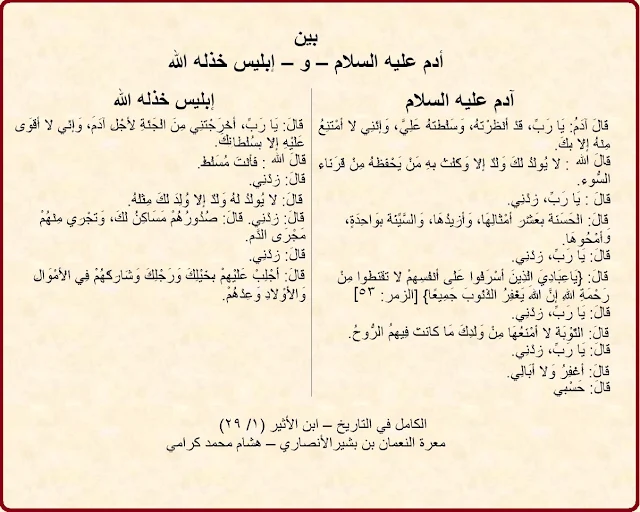 بين
أدم عليه السلام – و – إبليس خذله الله
آدم عليه السلام
قالَ آدَمُ: يَا رَبِّ، قَدْ أَنْظَرْتَهُ، وَسَلَّطْتَهُ عَلَيَّ، وَإِنَّنِي لَا أَمْتَنِعُ
مِنْهُ إِلَّا بِكَ.
قَالَ الله : لَا يُولَدُ لَكَ وَلَدٌ إِلَّا وَكَّلْتُ بِهِ مَنْ يَحْفَظُهُ مِنْ قُرَنَاءِ
السُّوءِ.
قَالَ : يَا رَبِّ، زِدْنِي.
قَالَ: الْحَسَنَةُ بِعَشْرِ أَمْثَالِهَا، وَأَزِيدُهَا، وَالسَّيِّئَةُ بِوَاحِدَةٍ،
وَأَمْحُوهَا.
قَالَ: يَا رَبِّ، زِدْنِي.
قَالَ: {يَاعِبَادِيَ الَّذِينَ أَسْرَفُوا عَلَى أَنْفُسِهِمْ لَا تَقْنَطُوا مِنْ
رَحْمَةِ اللهِ إِنَّ اللهَ يَغْفِرُ الذُّنُوبَ جَمِيعًا} [الزمر: ٥٣]
قَالَ: يَا رَبِّ، زِدْنِي.
قَالَ: التَّوْبَةُ لَا أَمْنَعُهَا مِنْ وَلَدِكَ مَا كَانَتْ فِيهِمُ الرُّوحُ.
قَالَ: يَا رَبِّ، زِدْنِي.
قَالَ: أَغْفِرُ وَلَا أُبَالِي.
قَالَ: حَسْبِي
إبليس خذله الله
قَالَ: يَا رَبِّ، أَخْرَجْتَنِي مِنَ الْجَنَّةِ لِأَجْلِ آدَمَ، وَإِنِّي لَا أَقْوَى
عَلَيْهِ إِلَّا بِسُلْطَانِكَ.
قَالَ الله : فَأَنْتَ مُسَلَّطٌ.
قَالَ: زِدْنِي.
قَالَ: لَا يُولَدُ لَهُ وَلَدٌ إِلَّا وُلِدَ لَكَ مِثْلُهُ.
قَالَ: زِدْنِي. قَالَ: صُدُورُهُمْ مَسَاكِنُ لَكَ، وَتَجْرِي مِنْهُمْ
مَجْرَى الدَّمِ.
قَالَ: زِدْنِي.
قَالَ: أَجْلِبْ عَلَيْهِمْ بِخَيْلِكَ وَرَجِلِكَ وَشَارِكْهُمْ فِي الْأَمْوَالِ
وَالْأَوْلَادِ وَعِدْهُمْ.
الكامل في التاريخ – ابن الأثير (١/ ٢٩)
معرة النعمان بن بشيرالأنصاري – هشام محمد كرامي